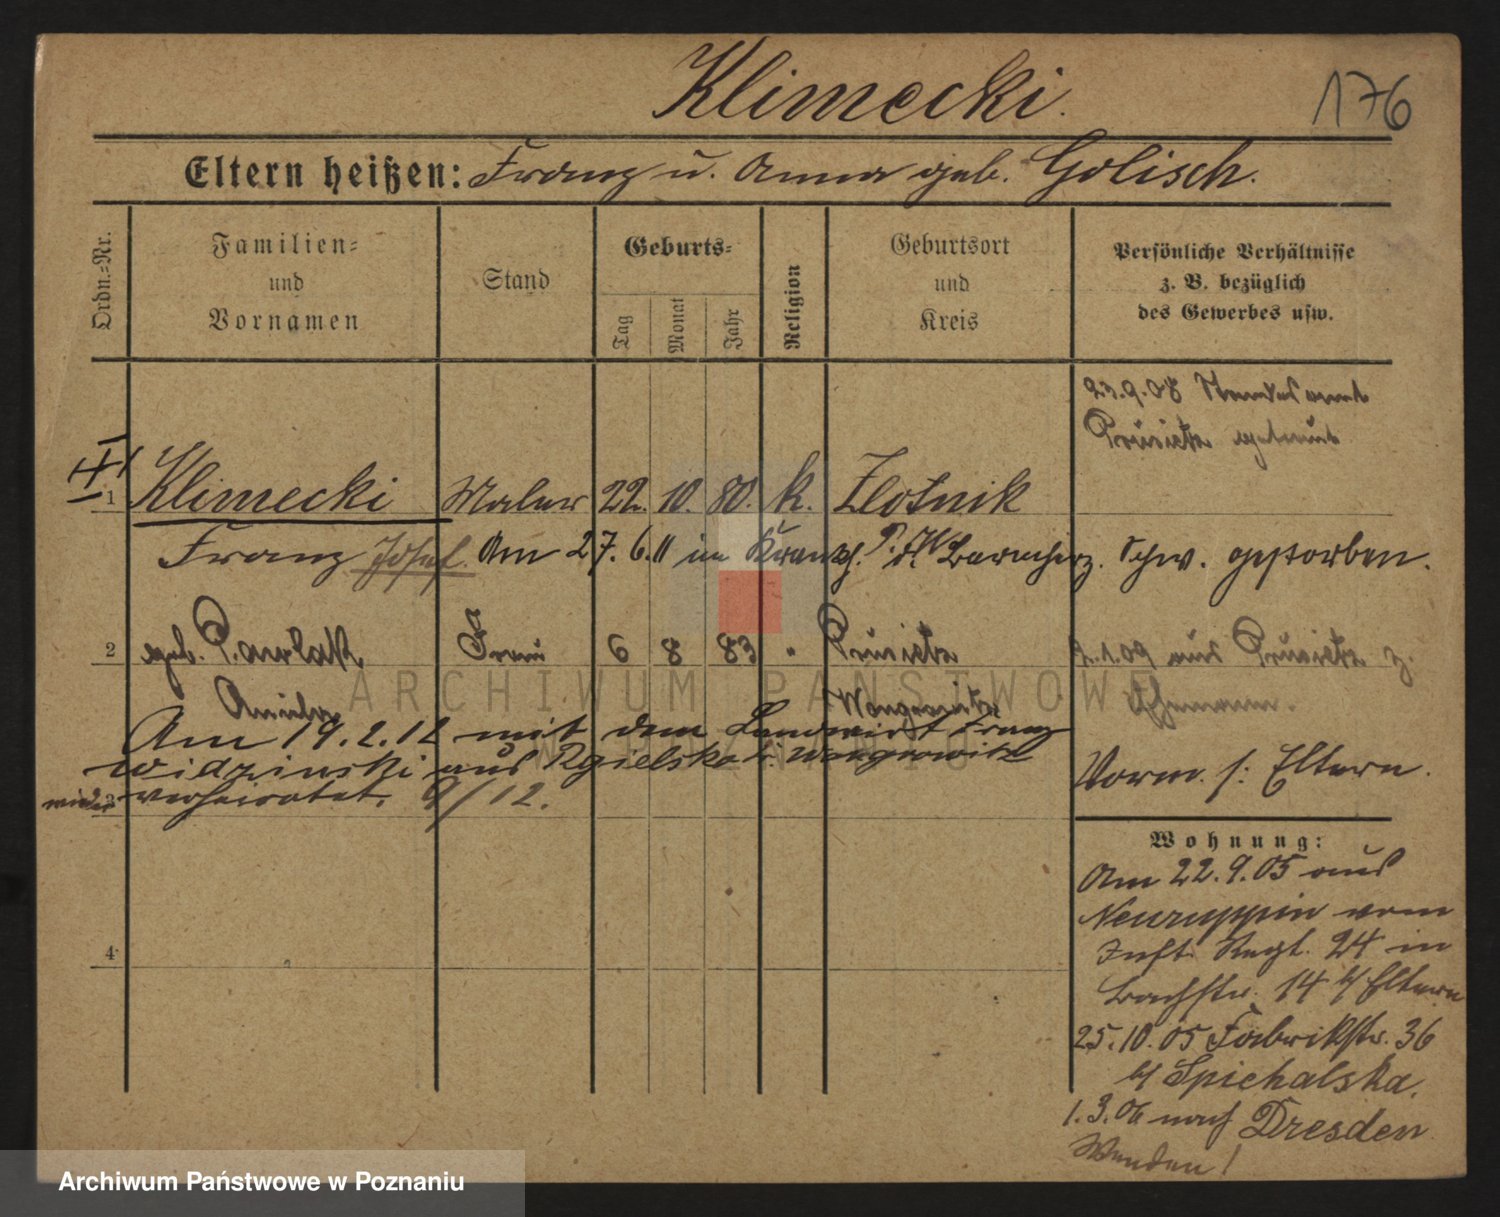 Klimecki.
176
Eltern heißen: Franz u. Anna geb. Golisch.
Ordn.-Nr.
Familien-
und
Vornamen
Stand
Geburts-
Tag
Monat
Jahr
Religion
Geburtsort
und
Kreis
Persönliche Verhältnisse
z. B. bezüglich
des Gewerbes usw.
23.9.08 Standesamt
Prusietz getraut
1 Klimecki Maler 22. 10. 80. k. Zlotnik
Franz Josef. Am 27.6.11 im Krankh. d. Barmherz. Schw. gestorben.
2 geb. Pawlak Frau 6 8 83 " Prusietz
2.1.09 aus Prusietz z.
Ehemann.
Wongrowitz
Am 19.2.12 mit dem Landwirt Franz
Widzinski aus Rgielsko b. Wongrowitz
wieder verheiratet. 9/12.
3
Vorm. s: Eltern.
Wohnung:
Am 22.9.05 aus
Neuruppin vom
Inft. Regt. 24 in
Bachstr. 14 b/ Eltern
25.10.05 Fabrikstr. 36
b/ Spichalska.
1.3.06 nach Dresden
Wenden!
4
ARCHIWUM PAŃSTWOWE
W POZNANIU
Archiwum Państwowe w Poznaniu